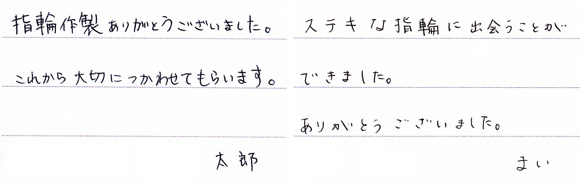 指輪作製ありがとうございました。
これから大切につかわせてもらいます。
太郎
ステキな指輪に出会うことが
できました。
ありがとうございました。
まい